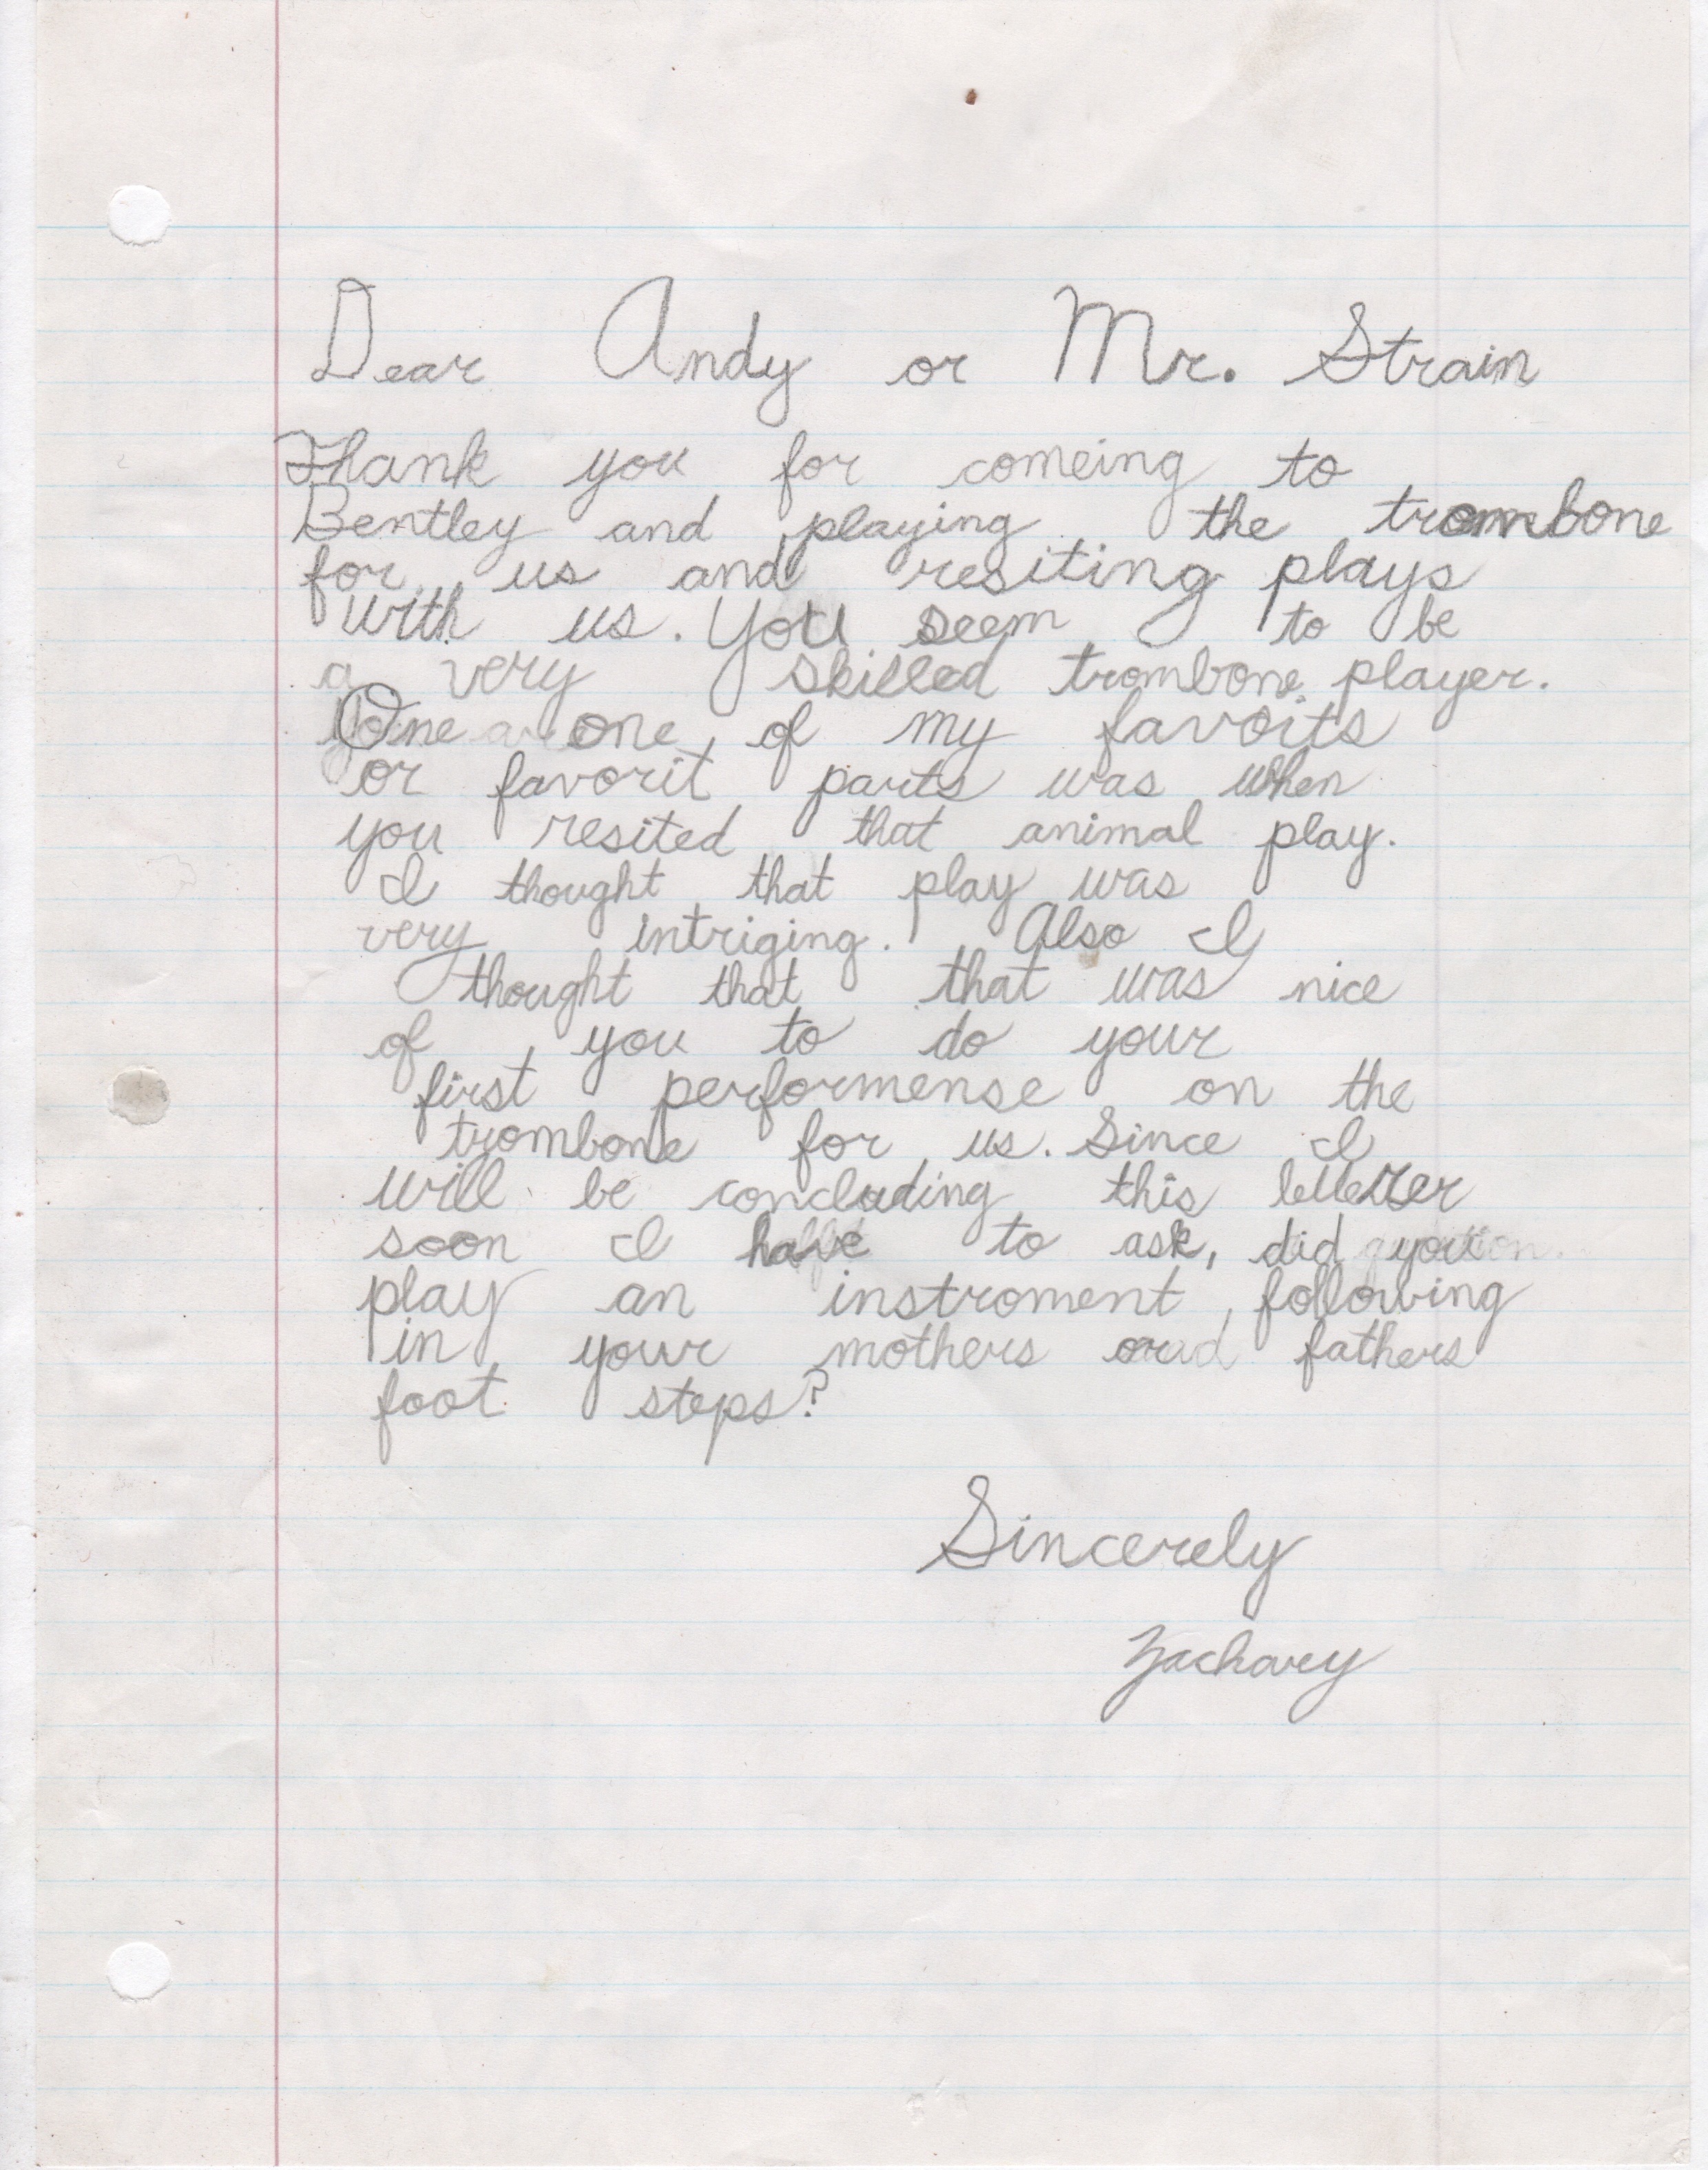 Dear Andy or Mr. Strain
Thank you for comeing to
Bentley and playing the trombone
for us and resiting plays
with us. You seem to be
a very skilled trombone player.
One one of my favoits
or favorit parts was when
you resited that animal play.
I thought that play was
very intriging. Also I
thought that that was nice
of you to do your
first performense on the
trombone for us. Since I
will be concluding this letter
soon I have to ask, did you
play an instroment following
in your mothers or fathers
foot steps?
Sincerely
Zachary